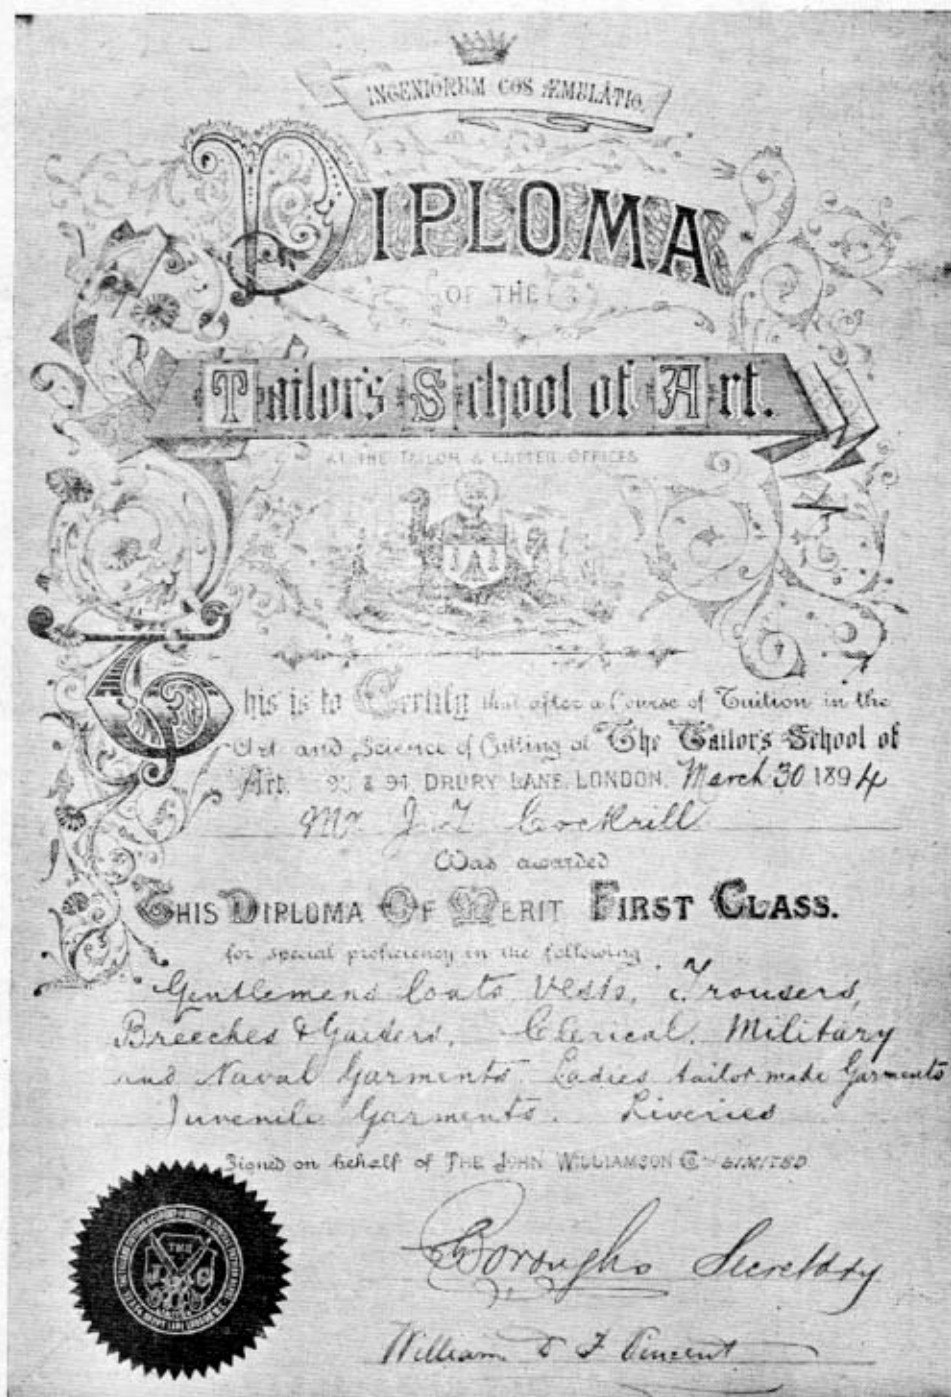 INGENIORUM COS ÆMULATIO.
DIPLOMA
OF THE
Tailor's School of Art.
AT THE TAILOR & CUTTER OFFICES
This is to Certify that after a Course of Tuition in the
Art and Science of Cutting at The Tailor's School of
Art. 93 & 94 DRURY LANE, LONDON. March 30 1894
Mr J. Cockrill
Was awarded
THIS DIPLOMA OF MERIT FIRST CLASS.
for special proficiency in the following
Gentlemens Coats Vests, Trousers,
Breeches & Gaiters, Clerical, Military
and Naval Garments Ladies tailor made Garments
Juvenile Garments. Liveries
Signed on behalf of THE JOHN WILLIAMSON Co LIMITED
Boroughs Secretary
William D F Vincent
THE